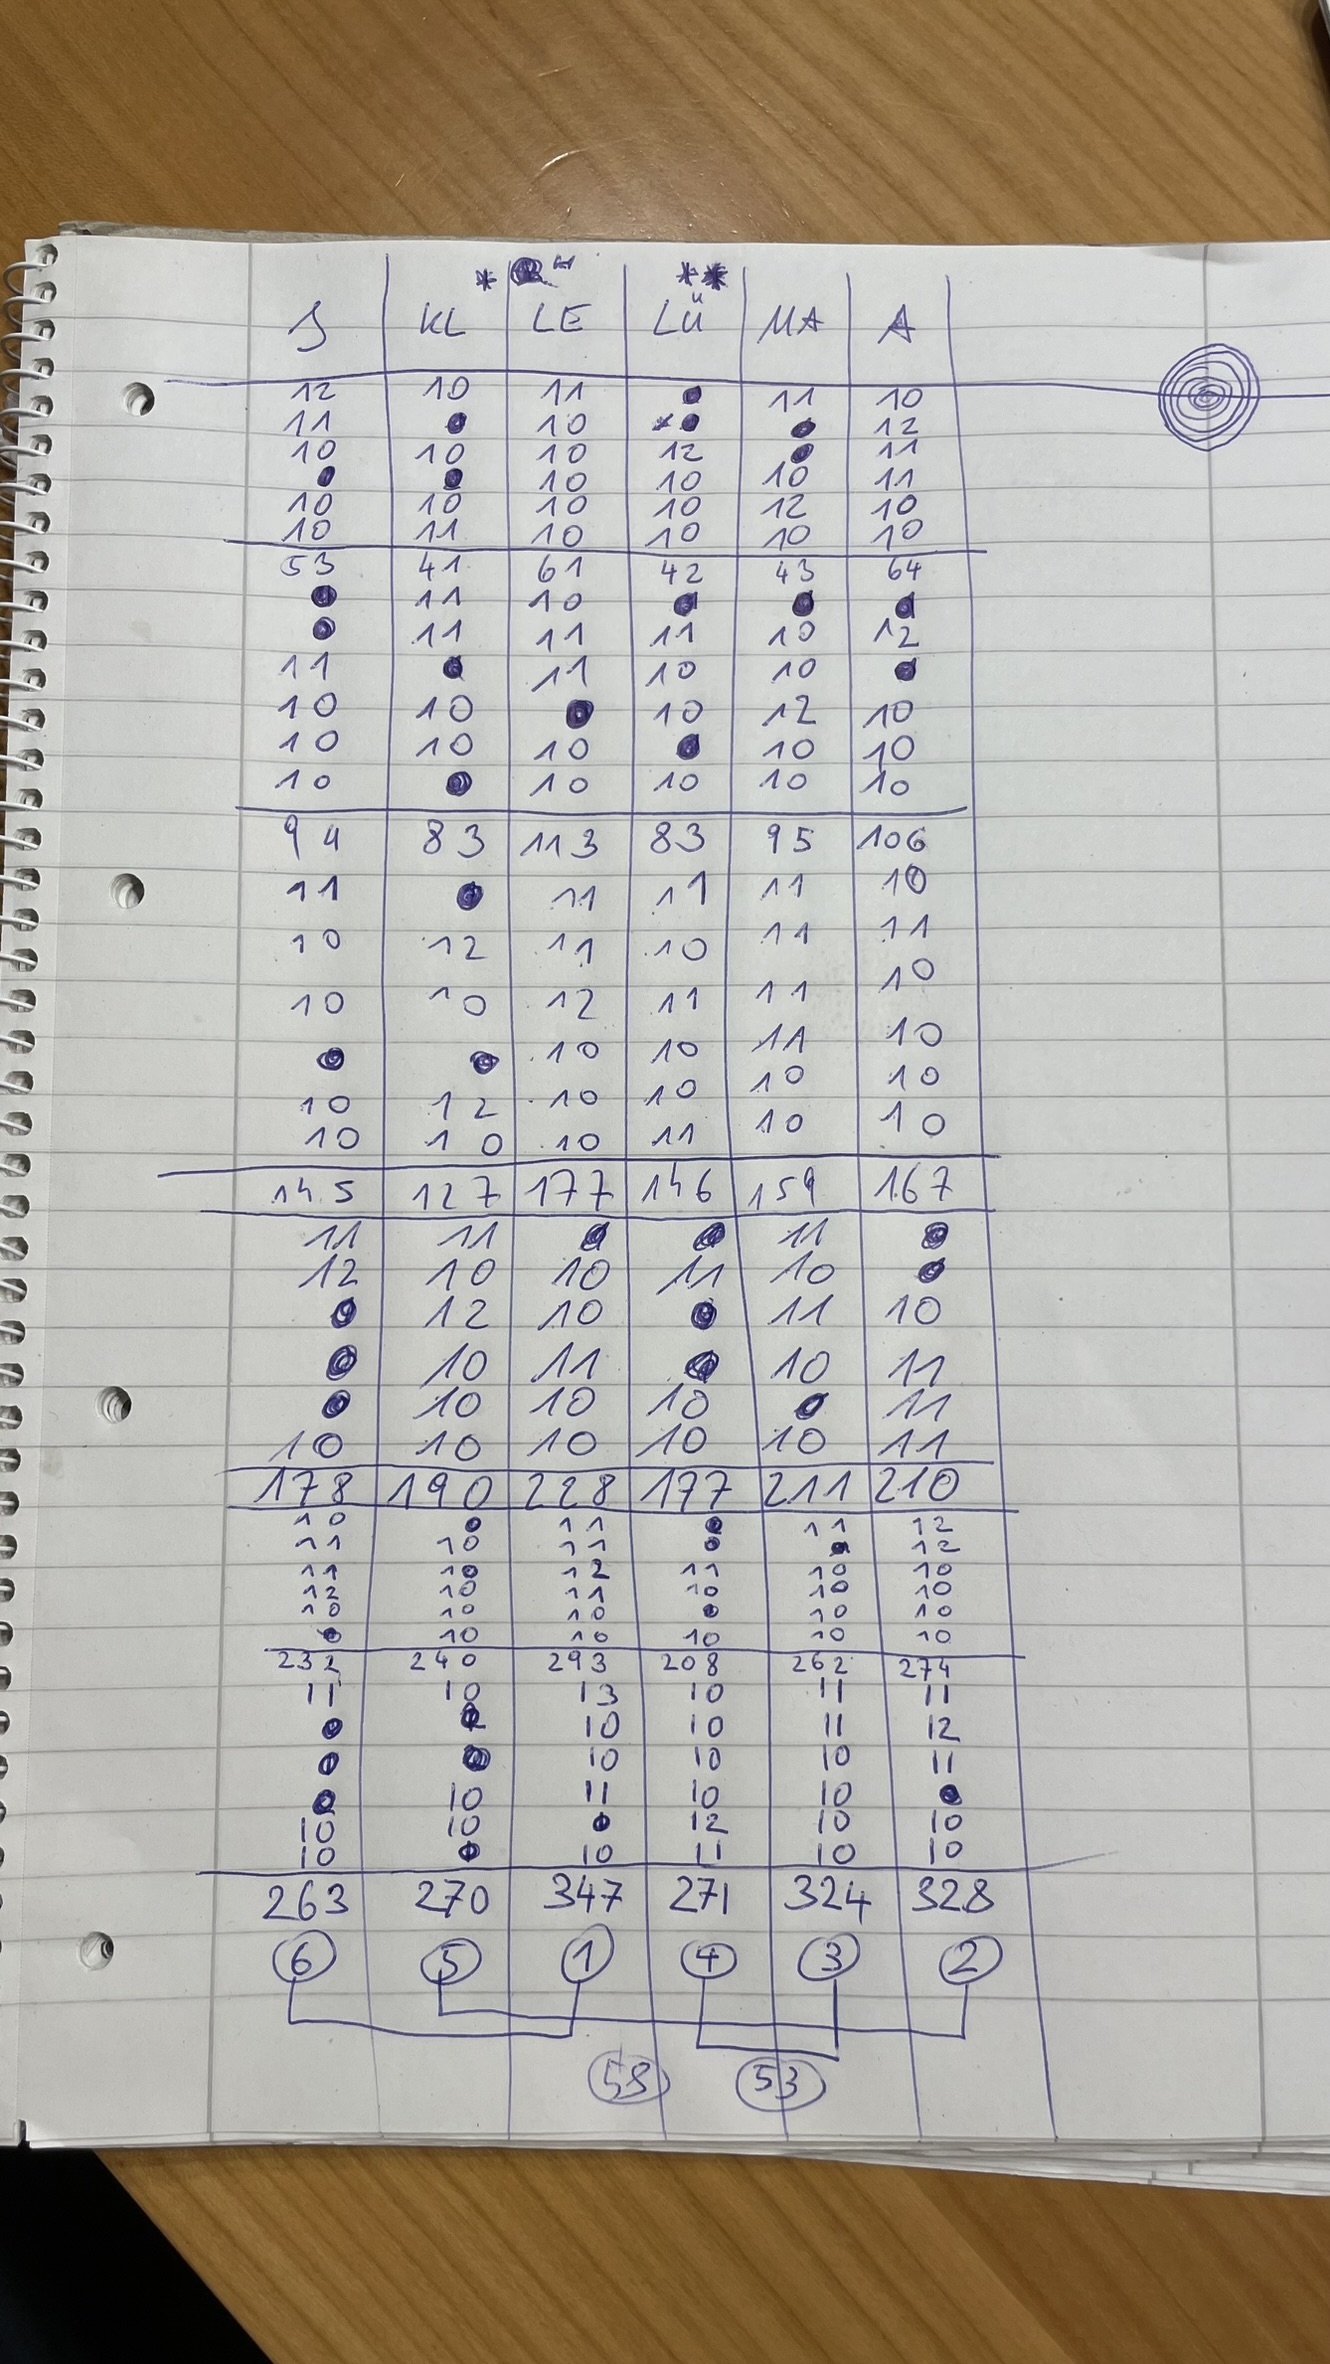 * **
J KL LE LÜ MA A
12 10 11 ● 11 10
11 ● 10 *● ● 12
10 10 10 12 ● 11
● ● 10 10 10 11
10 10 10 10 12 10
10 11 10 10 10 10
53 41 61 42 43 64
● 11 10 ● ● ●
● 11 11 11 10 12
11 ● 11 10 10 ●
10 10 ● 10 12 10
10 10 10 ● 10 10
10 ● 10 10 10 10
94 83 113 83 95 106
11 ● 11 11 11 10
10 12 11 10 11 11
10 10 12 11 11 10
● ● 10 10 11 10
10 12 10 10 10 10
10 10 10 11 10 10
145 127 177 146 159 167
11 11 ● ● 11 ●
12 10 10 11 10 ●
● 12 10 ● 11 10
● 10 11 ● 10 11
● 10 10 10 ● 11
10 10 10 10 10 11
178 190 228 177 211 210
10 ● 11 ● 11 12
11 10 11 ● ● 12
11 10 12 11 10 10
12 10 11 10 10 10
10 10 10 ● 10 10
● 10 10 10 10 10
232 240 293 208 262 274
11 10 13 10 11 11
● ● 10 10 11 12
● ● 10 10 10 11
● 10 11 10 10 ●
10 10 ● 12 10 10
10 ● 10 11 10 10
263 270 347 271 324 328
6 5 1 4 3 2
58 53